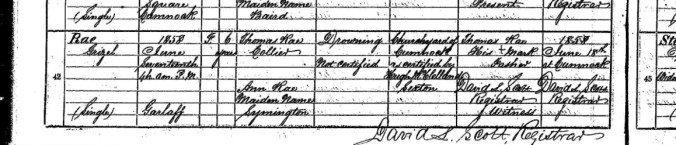 Square Maiden Name Present Registrar
(Single) Cumnock Baird
Rae 1858 F. 6 Thomas Rae Drowning Churchyard of Thomas Rae 1858
Grizel June years Collier Cumnock His + Mark June 18th
Seventeenth Not certified as certified by Father at Cumnock
42 4h. am. P.M. Hugh McClelland 45
Ann Rae Sexton David S. Scott David S. Scott
Maiden Name Registrar Registrar
(Single) Garlaff Symington Witness
David S. Scott, Registrar